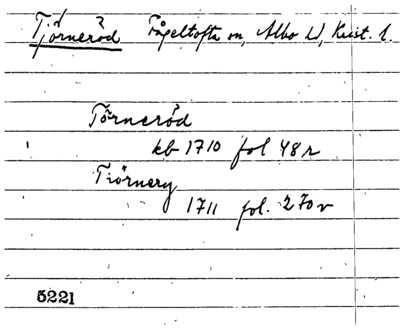 Tjörneröd Fågeltofta sn, Albo hd, Krist. l.
Törneröd
kb 1710 fol 48 r
Tiörnery
1711 fol. 270 v
5221